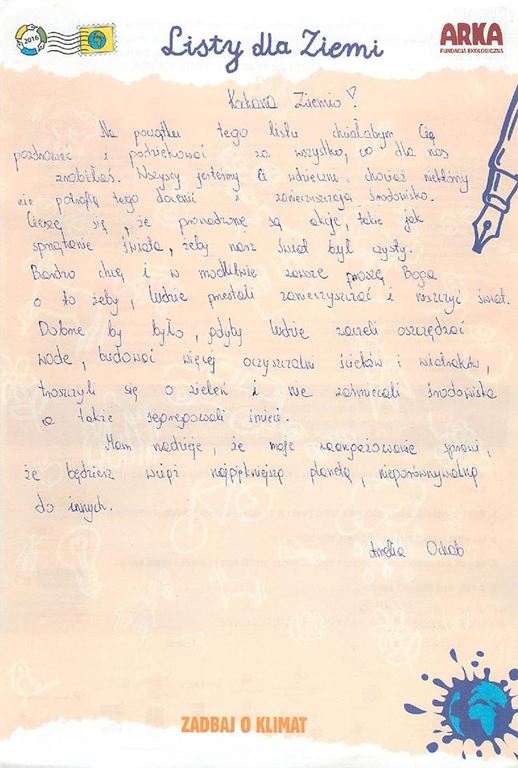 2016
Listy dla Ziemi
ARKA
FUNDACJA EKOLOGICZNA
Kochana Ziemio!
Na początku tego listu chciałabym Cię
pozdrowić i podziękować za wszystko, co dla nas
zrobiłaś. Wszyscy jesteśmy Ci wdzięczni chociaż niektórzy
nie potrafią tego docenić i zanieczyszczają środowisko.
Cieszę się, że prowadzone są akcje, takie jak
sprzątanie świata, żeby nasz świat był czysty.
Bardzo chcę i w modlitwie zawsze proszę Boga
o to żeby, ludzie przestali zanieczyszczać i niszczyć świat.
Dobrze by było, gdyby ludzie zaczeli oszczędzać
wodę, budować więcej oczyszczalni ścieków i wiatraków,
troszczyli się o zieleń i nie zaśmiecali środowiska
a także segregowali śmieci.
Mam nadzieję, że moje zaangażowanie sprawi,
że będziesz wciąż najpiękniejszą planetą, nieporównywalną
do innych.
Amelia Ochab
ZADBAJ O KLIMAT